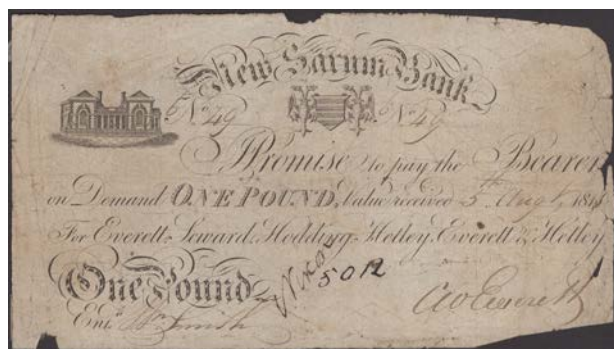 New Sarum Bank
No. 49 No. 49
I Promise to pay the Bearer
on Demand ONE POUND, Value received 5th Augt. 181
For Everett, Seward, Hodding, Hetley, Everett & Hetley
One Pound
5012
Entd. Wm Smith